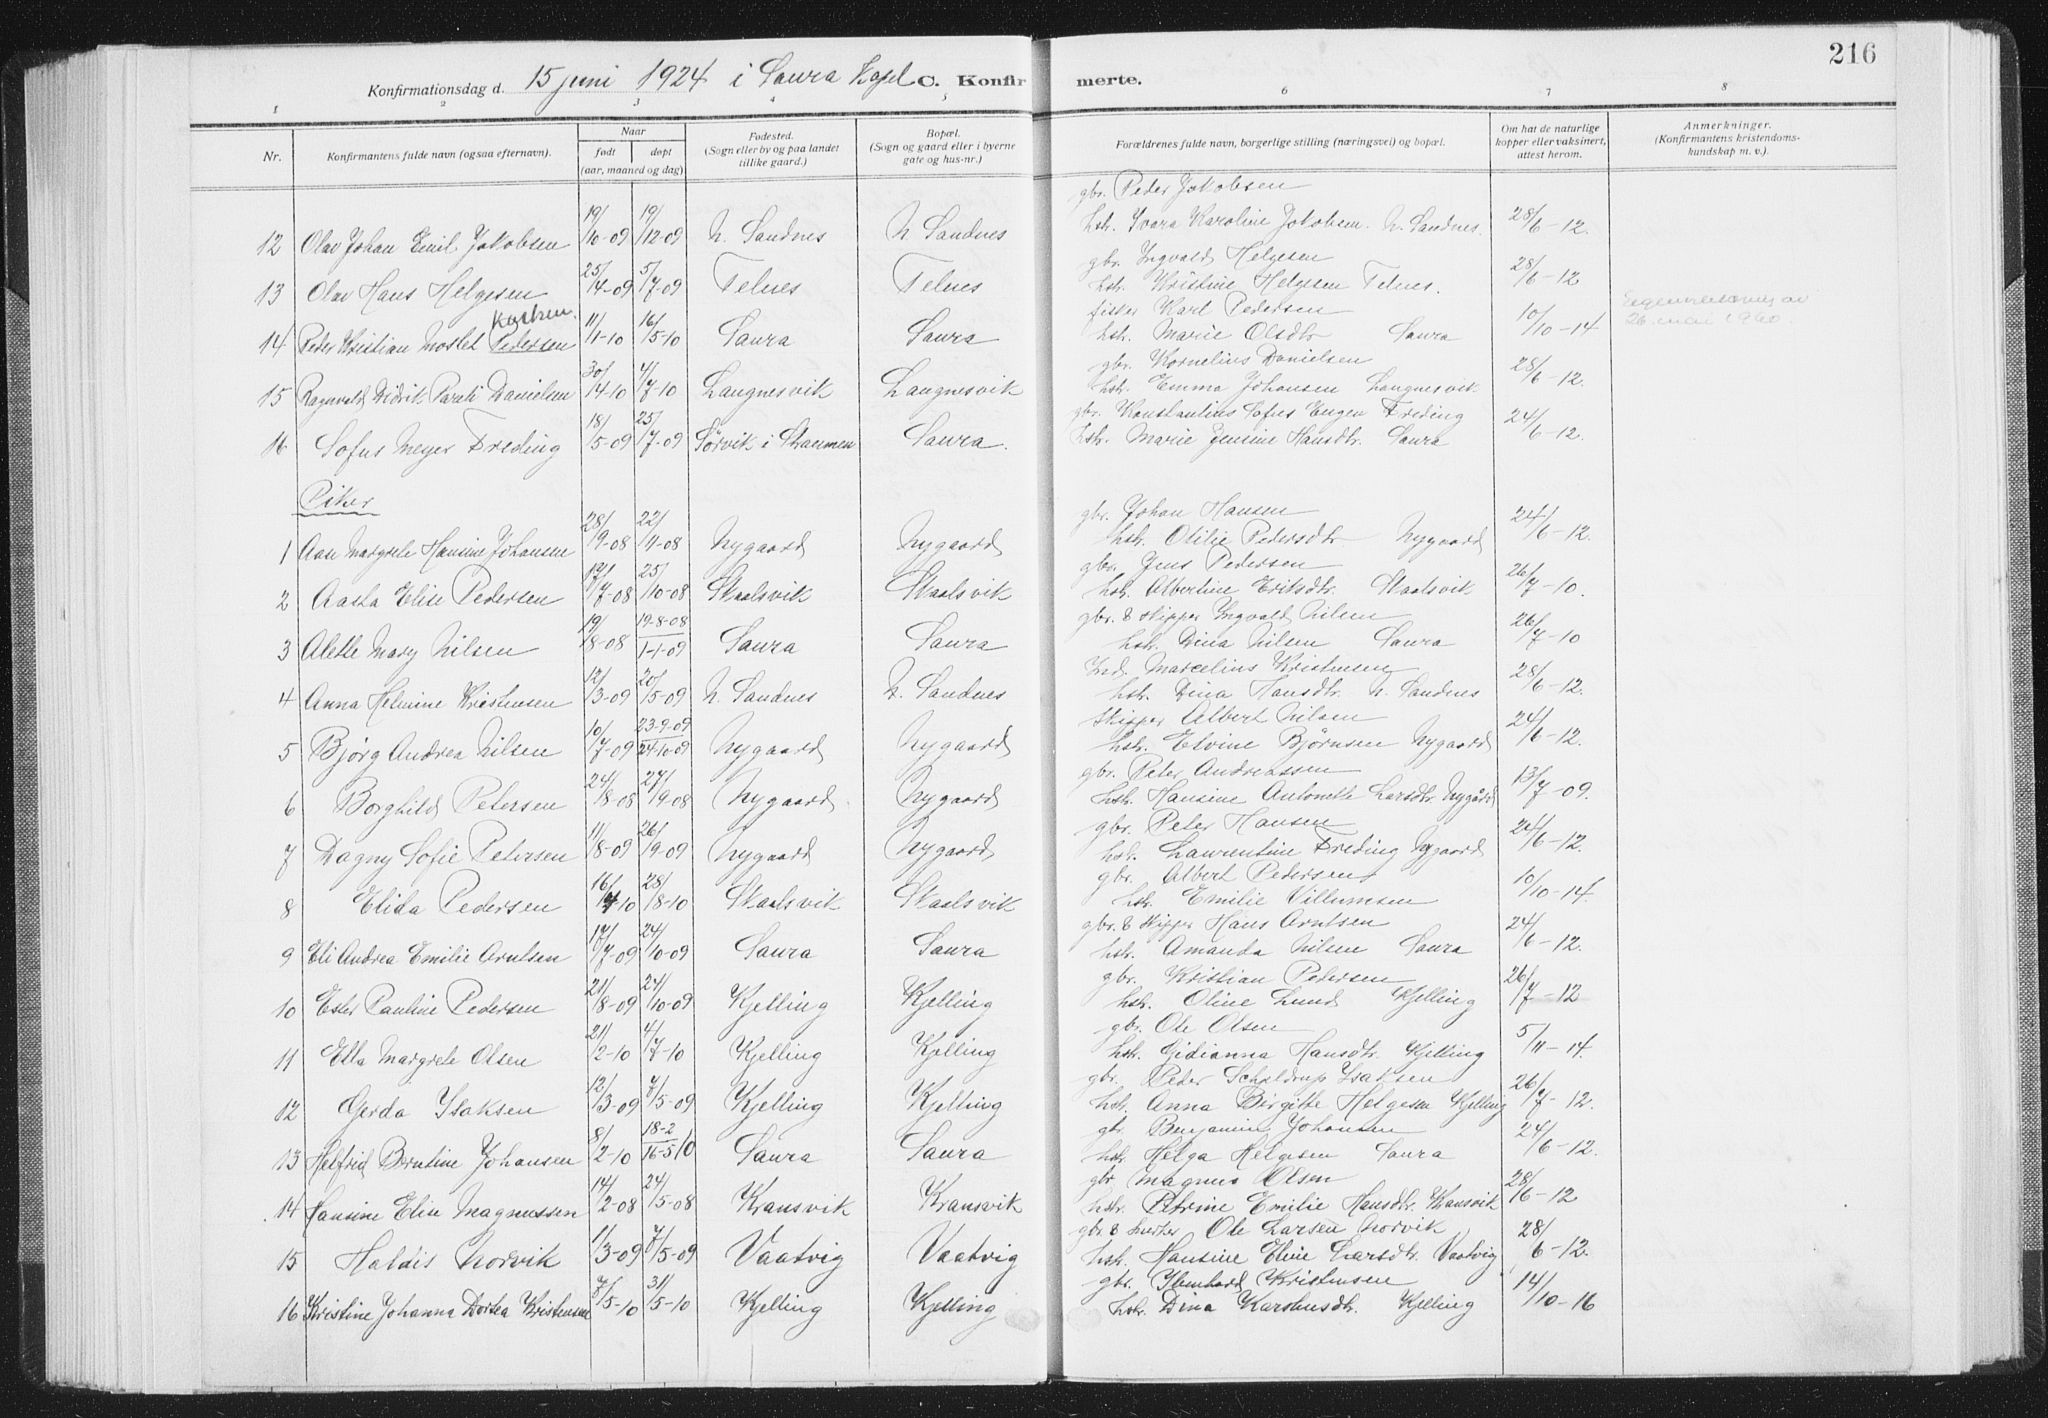 216
Konfirmationsdag d. 15 juni 1924 i Saura Kapel C. Konfirmerte.
1 2 3 4 5 6 7 8
Nr. Konfirmantens fulde navn (ogsaa efternavn). Naar født døpt (aar, maaned og dag) Fødested. (Sogn eller by og paa landet tillike gaard.) Bopæl. (Sogn og gaard eller i byerne gate og hus-nr.) Forældrenes fulde navn, borgerlige stilling (næringsvei) og bopæl. Om hat de naturlige kopper eller vaksinert, attest herom. Anmerkninger. (Konfirmantens kristendomskundskap m. v.).
gbr. Peder Jakobsen
12 Olav Johan Emil Jakobsen 19/10-09 19/12-09 N. Sandnes N. Sandnes hstr. Ivara Karoline Jakobsen. N. Sandnes. 28/6-12.
gbr. Ingvald Helgesen
13 Olav Hans Helgesen 25/4-09 5/7-09 Telnes Telnes hstr. Kristine Helgesen Telnes. 28/6-12
fisker Karl Pedersen
14 Peder Kristian Moslet Pedersen 11/1-10 16/5-10 Saura Saura hstr. Marie Olsdtr Saura 10/10-14 26. mai 1960.
gbr. Kornelius Danielsen
15 Ragnvald Didrik Parali Danielsen 30/4-10 4/7-10 Langnesvik Langnesvik hstr. Emma Johansen Langnesvik 28/6-12.
gbr. Konstantius Sofus Eugen Freding
16 Sofus Meyer Freding 18/5-09 25/7-09 Sørvik i Straumen Saura. hstr. Marie Jensine Hansdtr. Saura 24/6-12.
Piker
gbr. Johan Hansen
1 Aau Margrete Hansine Johansen 28/9-08 22/11-08 Nygaard Nygaard hstr. Otilie Pedersdtr Nygaard 24/6-12.
gbr. Jens Pedersen
2 Aasta Elise Pedersen 17/7-08 25/10-08 Skaalsvik Skaalsvik hstr. Albertine Eriksdtr. Skaalsvik 26/7-10.
gbr. & skipper Ingvald Nilsen
3 Alette Mary Nilsen 19/8-08 19-8-08/1-1-09 Saura Saura hstr. Dina Nilsen Saura 26/7-10
Ind. Marcelius Kristensen
4 Anna Helmine Kristensen 12/3-09 20/5-09 N. Sandnes N. Sandnes hstr. Dina Hansdtr. N. Sandnes 28/6-12.
skipper Albert Nilsen
5 Bjørg Andrea Nilsen 10/7-09 23-9-09/24-10-09 Nygaard Nygaard hstr. Elvine Bjørnsen Nygaard 24/6-12.
gbr. Peter Andreassen
6 Borghild Petersen 24/8-08 27/9-08 Nygaard Nygaard hstr. Hansine Antonette Larsdtr. Nygård 13/7-09.
gbr. Peter Hansen
7 Dagny Sofie Petersen 11/8-09 26/9-09 Nygaard Nygaard hstr. Laurentine Freding Nygaard 24/6-12.
gbr. Albert Pedersen
8 Elida Pedersen 16/7-10 28/8-10 Skaalsvik Skaalsvik hstr. Emilie Villumsen 10/10-14.
gbr. & skipper Hans Arntsen
9 Eli Andrea Emilie Arntsen 17/7-09 24/10-09 Saura Saura hstr. Amanda Nilsen Saura 24/6-12.
gbr. Kristian Pedersen
10 Ester Pauline Pedersen 21/8-09 24/10-09 Kjelling Kjelling hstr. Oline Lund Kjelling 26/7-12
gbr. Ole Olsen
11 Ella Margrete Olsen 21/2-10 4/7-10 Kjelling Kjelling hstr. Gidianna Hansdtr. Kjelling 5/11-14.
gbr. Peder Schjeldrup Isaksen
12 Gerda Isaksen 12/3-09 7/5-09 Kjelling Kjelling hstr. Anna Birgitte Helgesen Kjelling 26/7-12.
gbr. Benjamin Johansen
13 Helfrid Berntine Johansen 8/2-10 18-2/16-5 10 Saura Saura hstr. Helga Helgesen Saura 24/6-12.
gbr. Magnus Olsen
14 Hansine Elise Magnussen 14/2-08 24/5-08 Kransvik Kransvik hstr. Petrine Emilie Hansdtr. Kransvik 28/6-12
gbr. & Ole Larsen Norvik
15 Haldis Norvik 1/3-09 7/5-09 Vaatvig Vaatvig hstr. Hansine Elvie Larsdtr. Vaatvig 28/6-12.
gbr. Kristensen
16 Kristine Johanna Dortea Kristensen 7/5-10 31/5-10 Kjelling Kjelling hstr. Dina Karstensdtr. Kjelling 14/10-16